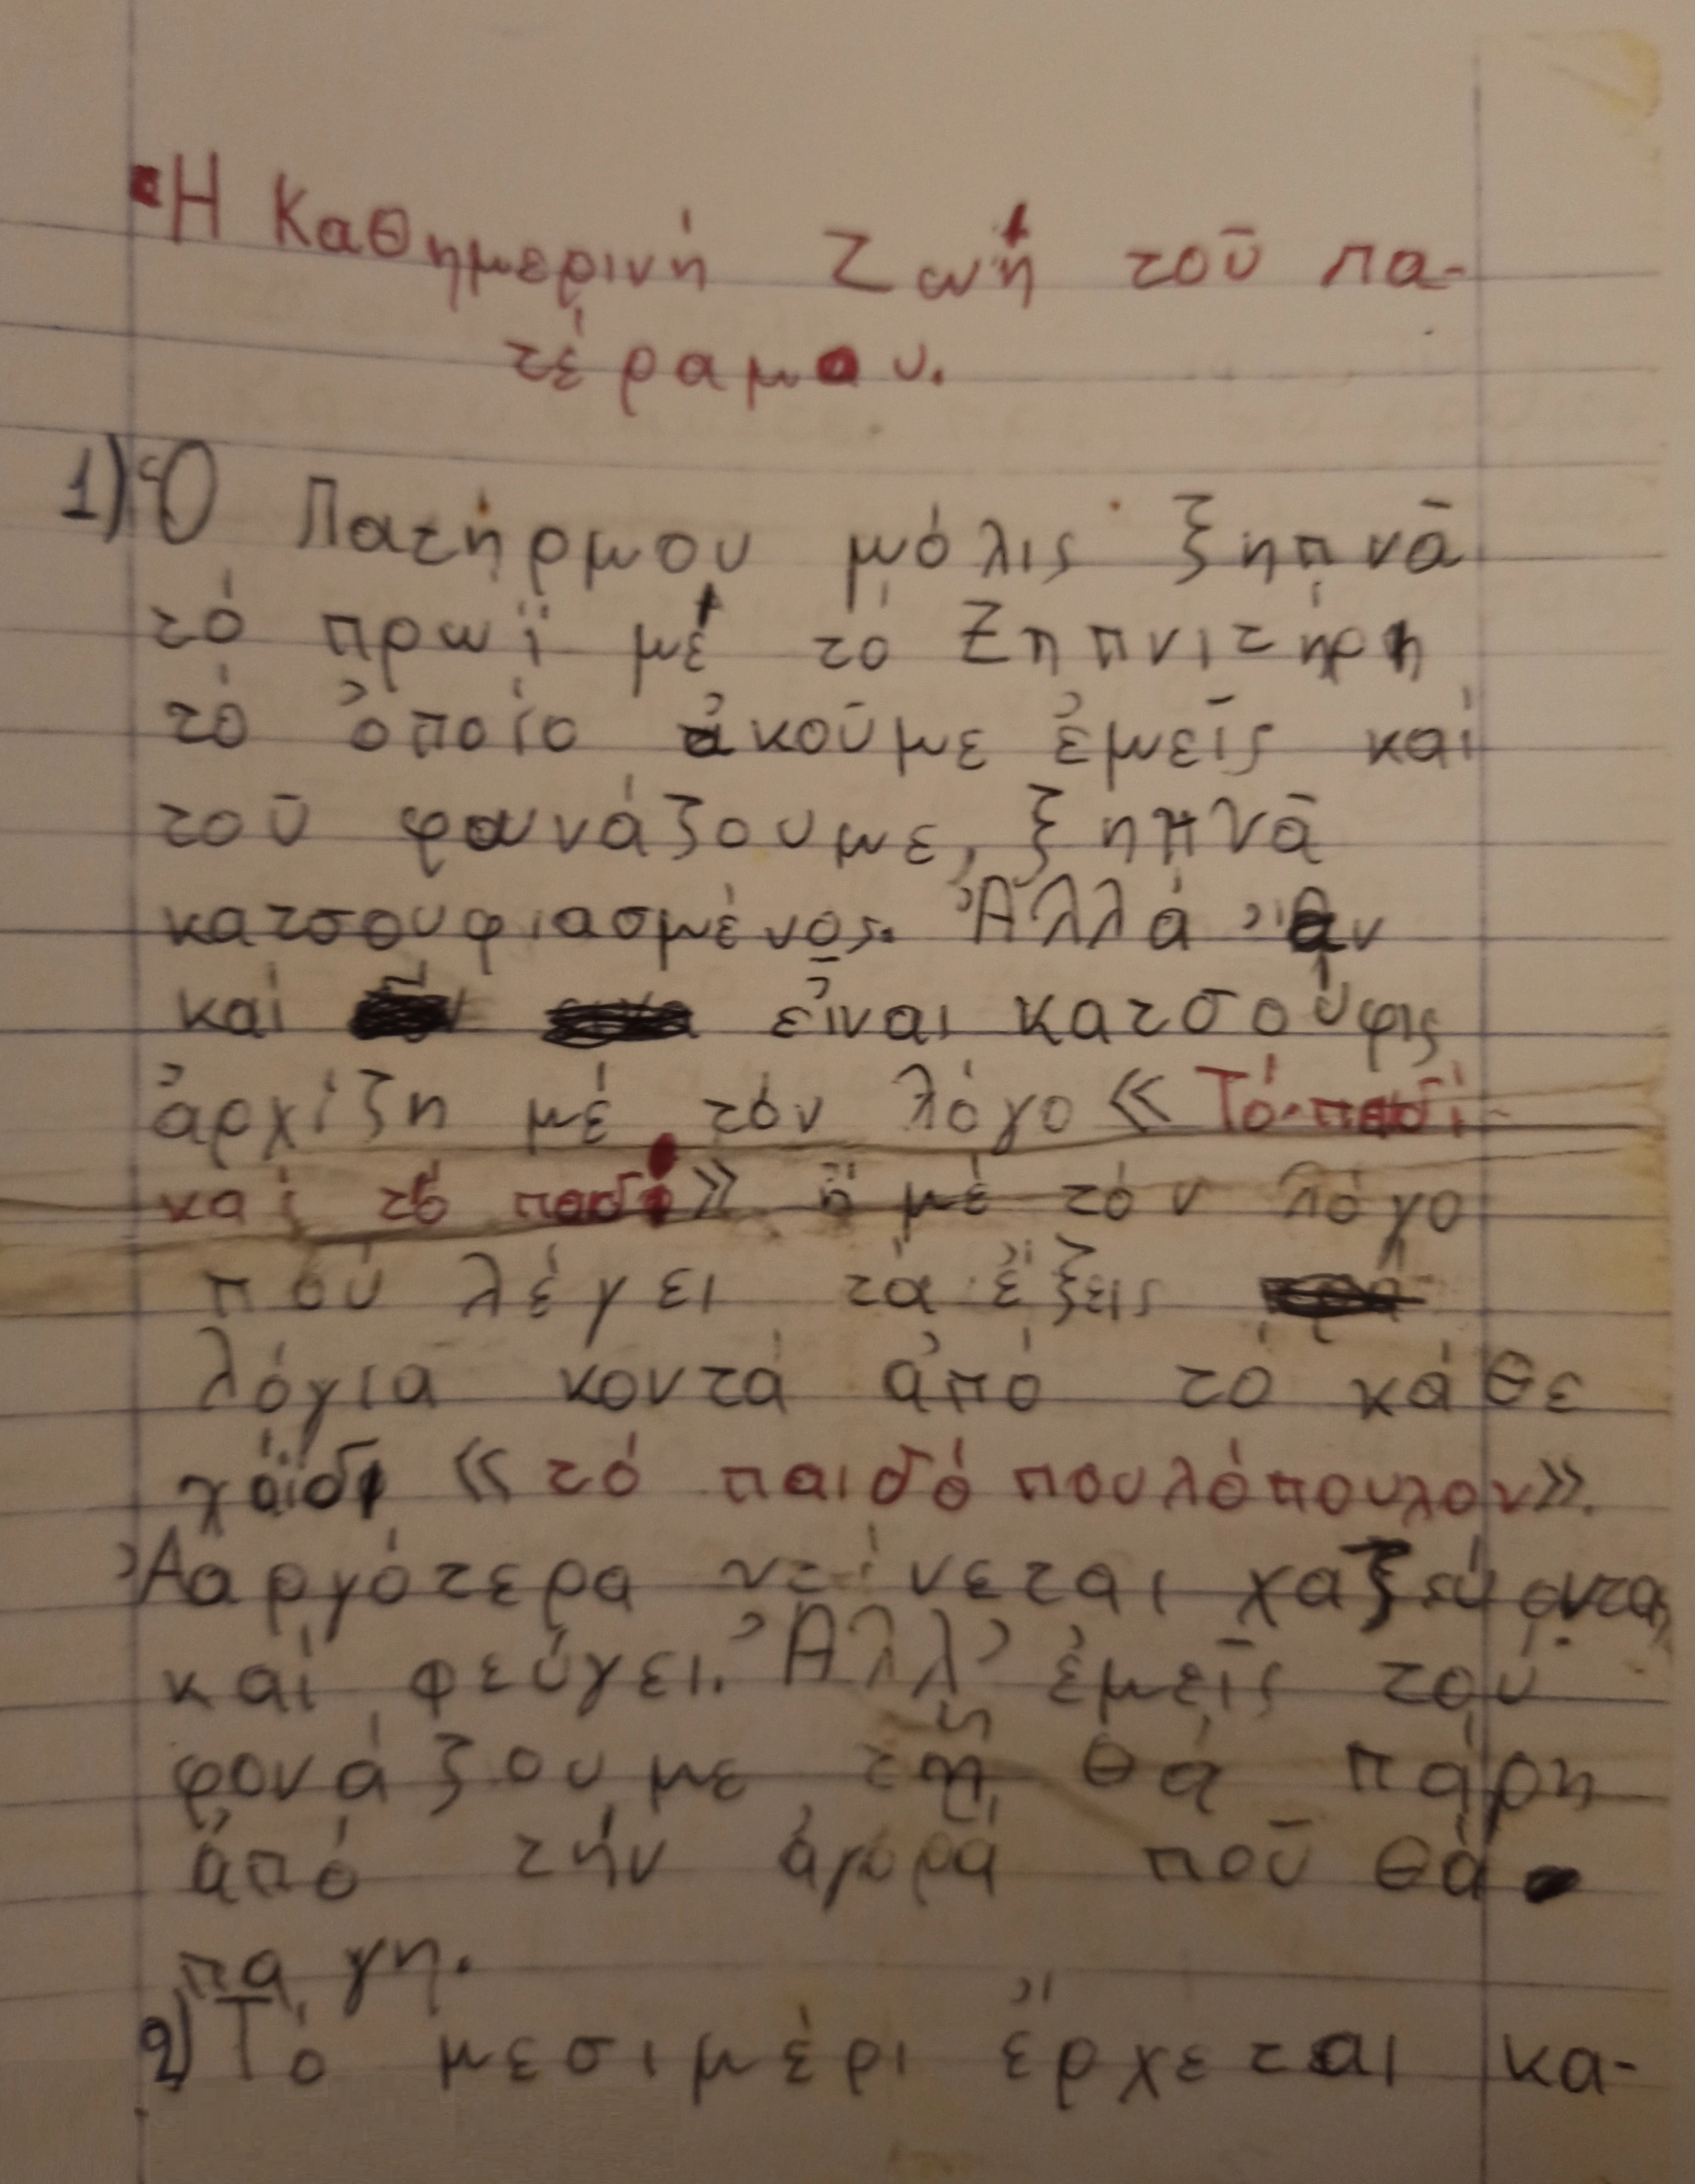 Ἡ Καθημερινή Ζωή τοῦ πα-
τέραμου.
1) Ὁ Πατήρμου μόλις ξηπνᾶ
τό πρωϊ μέ τό Ξηπνιτήρη
τό ὁποίο ἀκοῦμε ἐμεῖς καί
τοῦ φανάζουμε, ξηπνᾶ
κατσουφιασμένος. Ἀλλά ἄν
καί εἶναι κατσούφις
ἀρχίζη μέ τόν λόγο « Τό παιδί
καί τό παιδί » ἤ μέ τόν λόγο
πού λέγει τά ἕξεις
λόγια κοντά ἀπό τό κάθε
χάϊδι « τό παιδόπουλόπουλον».
Ἀαργότερα ντίνεται χαζεύοντας
καί φεύγει. Ἀλλ' ἐμεῖς τού
φονάζουμε τί θά πάρη
ἀπό τήν ἀγορά ποῦ θά
πα γη.
2) Τό μεσιμέρι ἔρχεται κα-